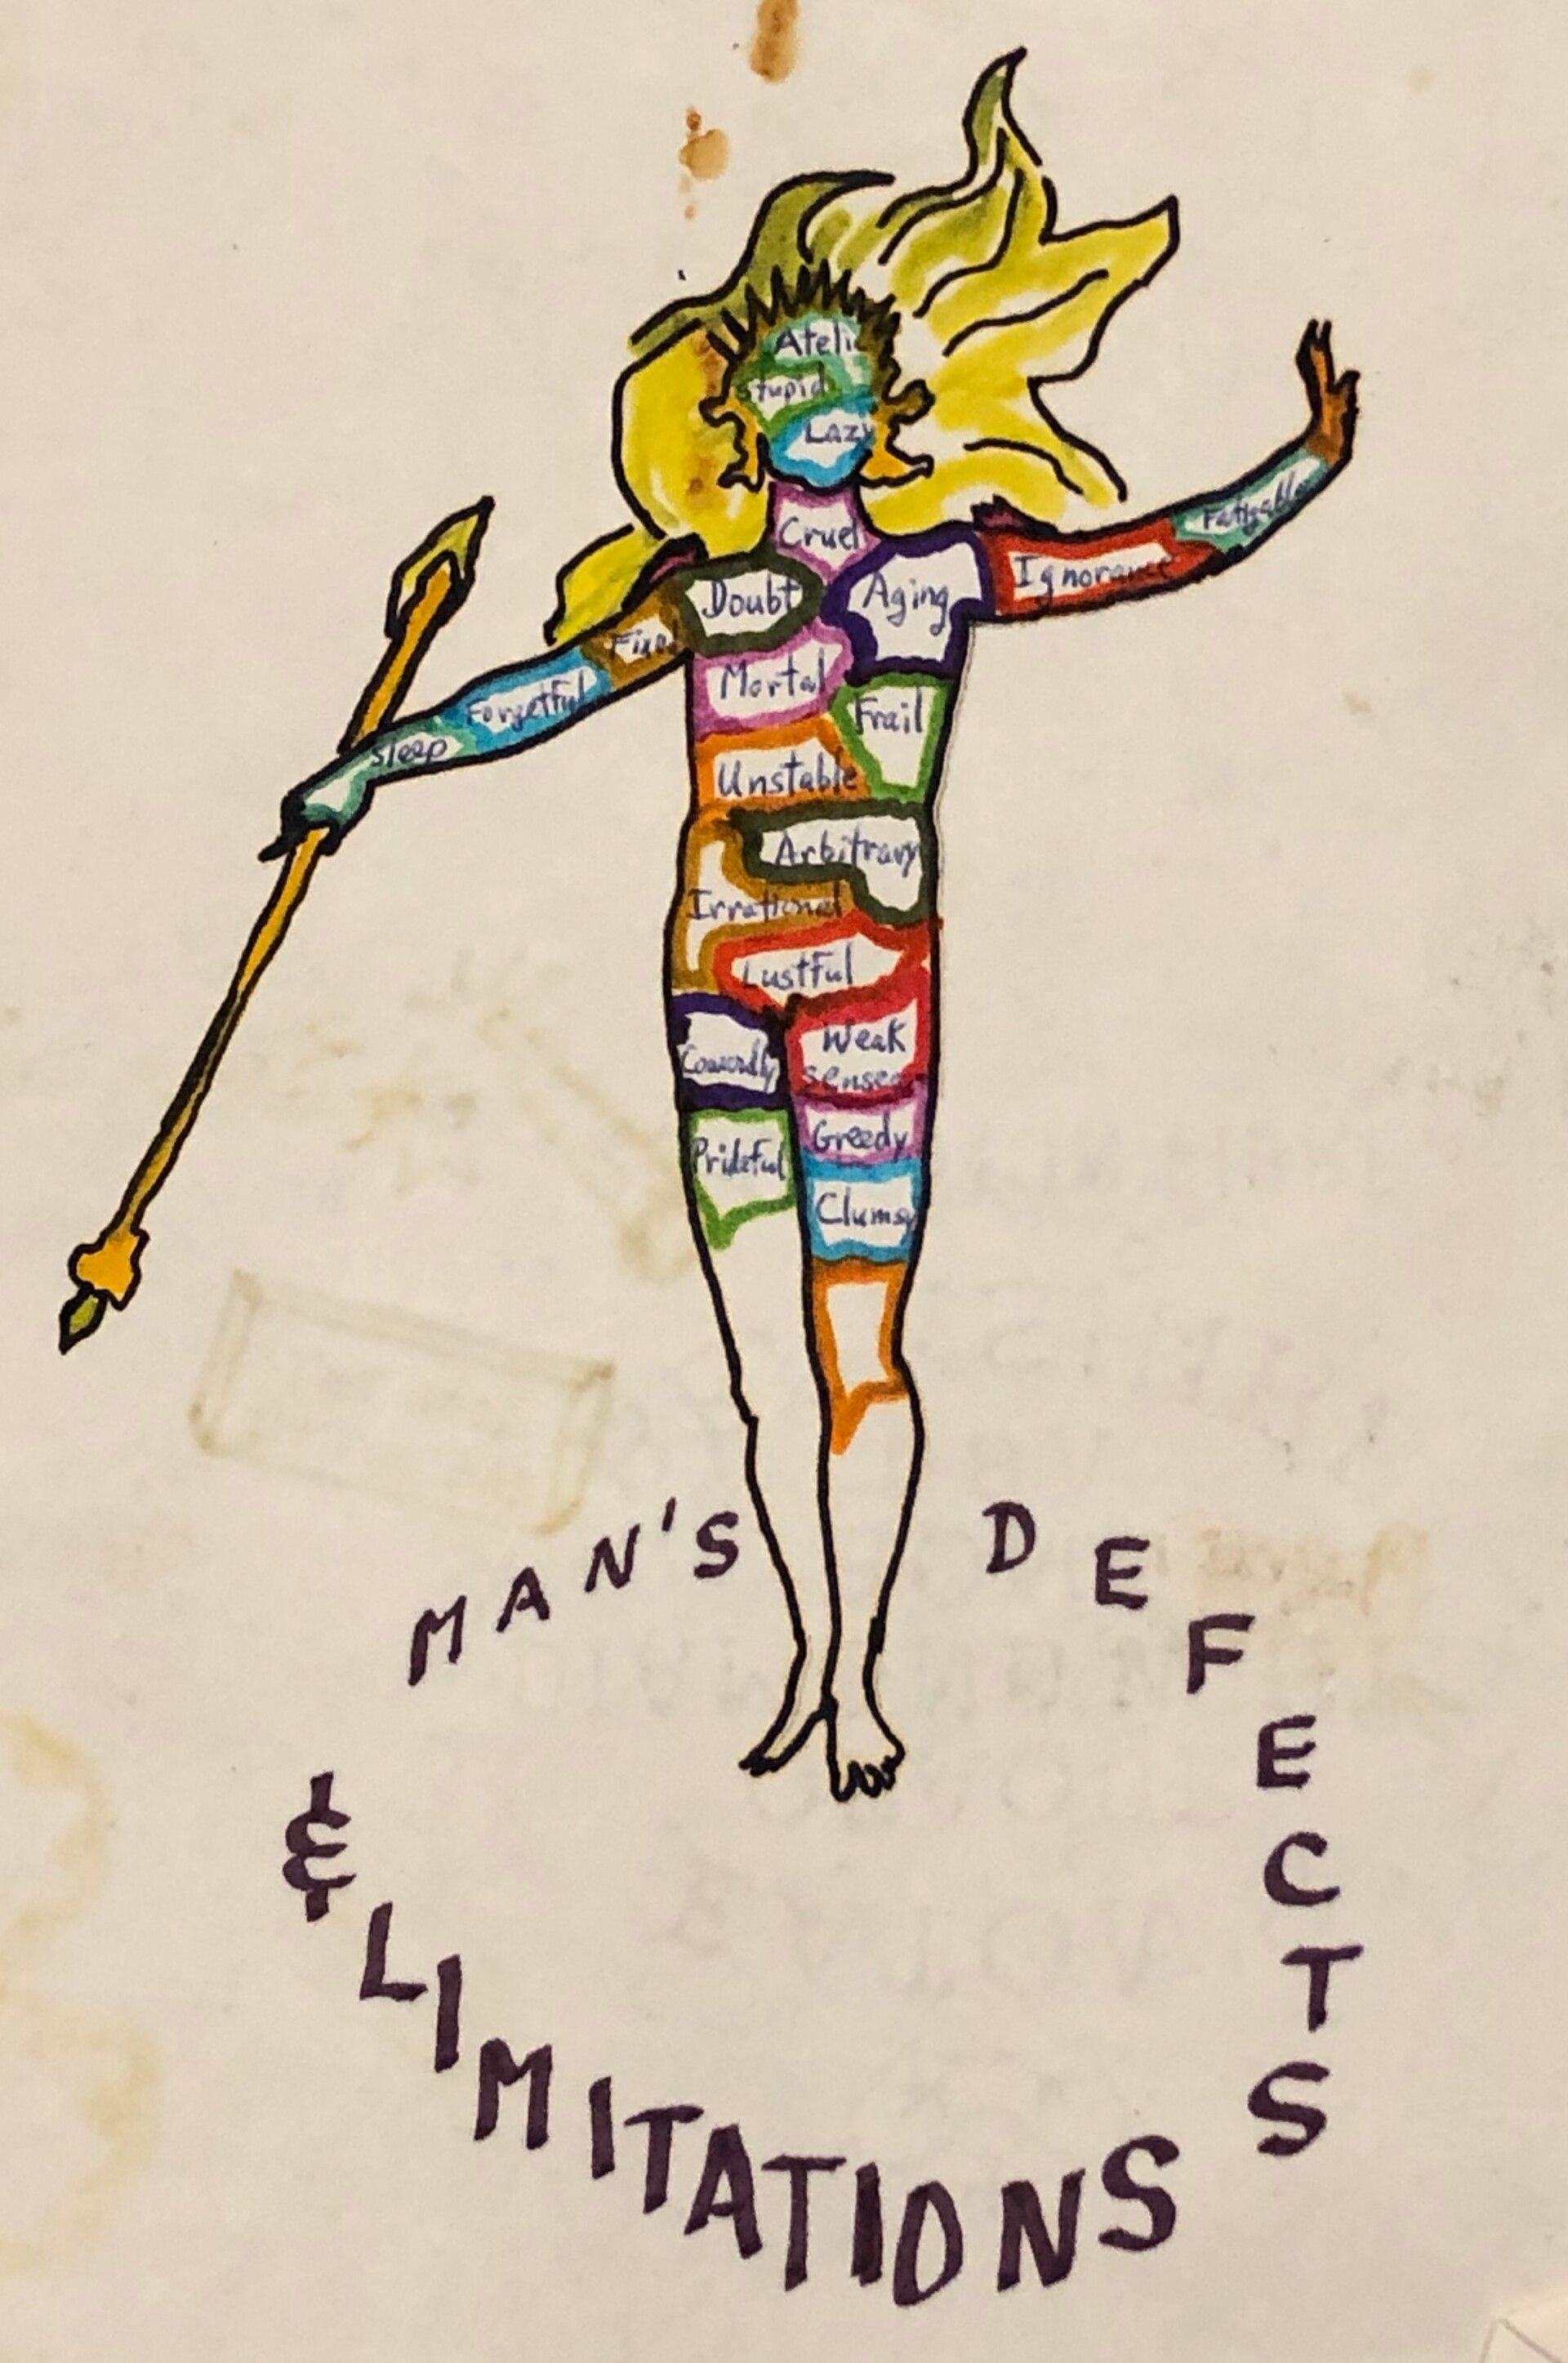 Atelic
Stupid
Lazy
Cruel
Doubt
Aging
Ignorance
Fatigable
Forgetful
Sleep
Mortal
Frail
Unstable
Arbitrary
Irrational
Lustful
Cowardly
Weak
senses
Greedy
Prideful
Clumsy
MAN'S DEFECTS
& LIMITATIONS